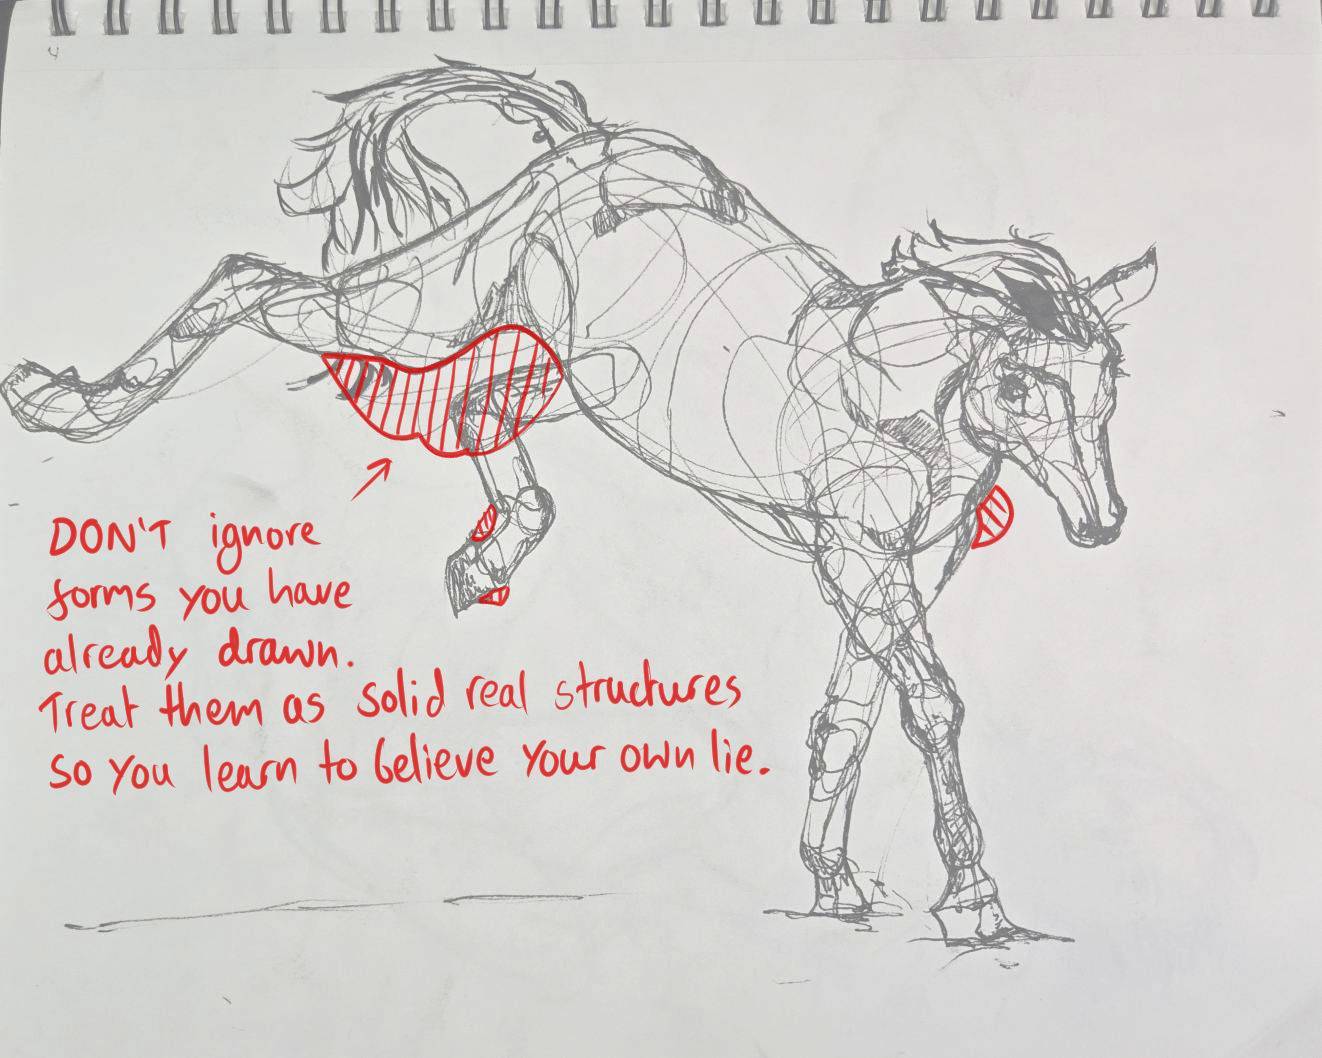 DON'T ignore
forms you have
already drawn.
Treat them as solid real structures
so you learn to believe your own lie.